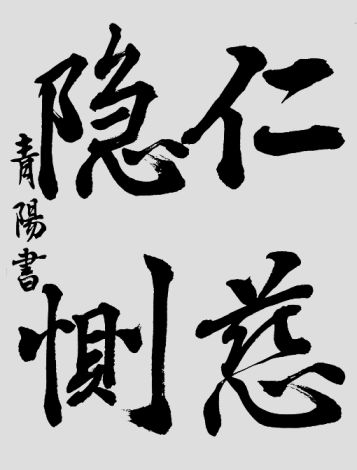 仁慈
隐惻
青陽書